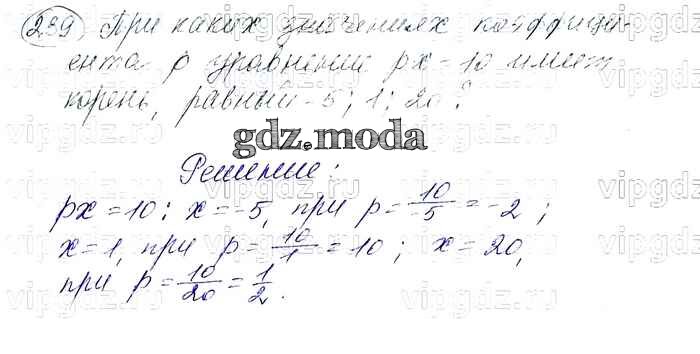 239 При каких значениях коэффици-
ента p уравнение px = 10 имеет
корень, равный -5; 1; 20?
gdz.moda
Решение:
px = 10; x = -5, при p = 10/-5 = -2;
x = 1, при p = 10/1 = 10; x = 20,
при p = 10/20 = 1/2.